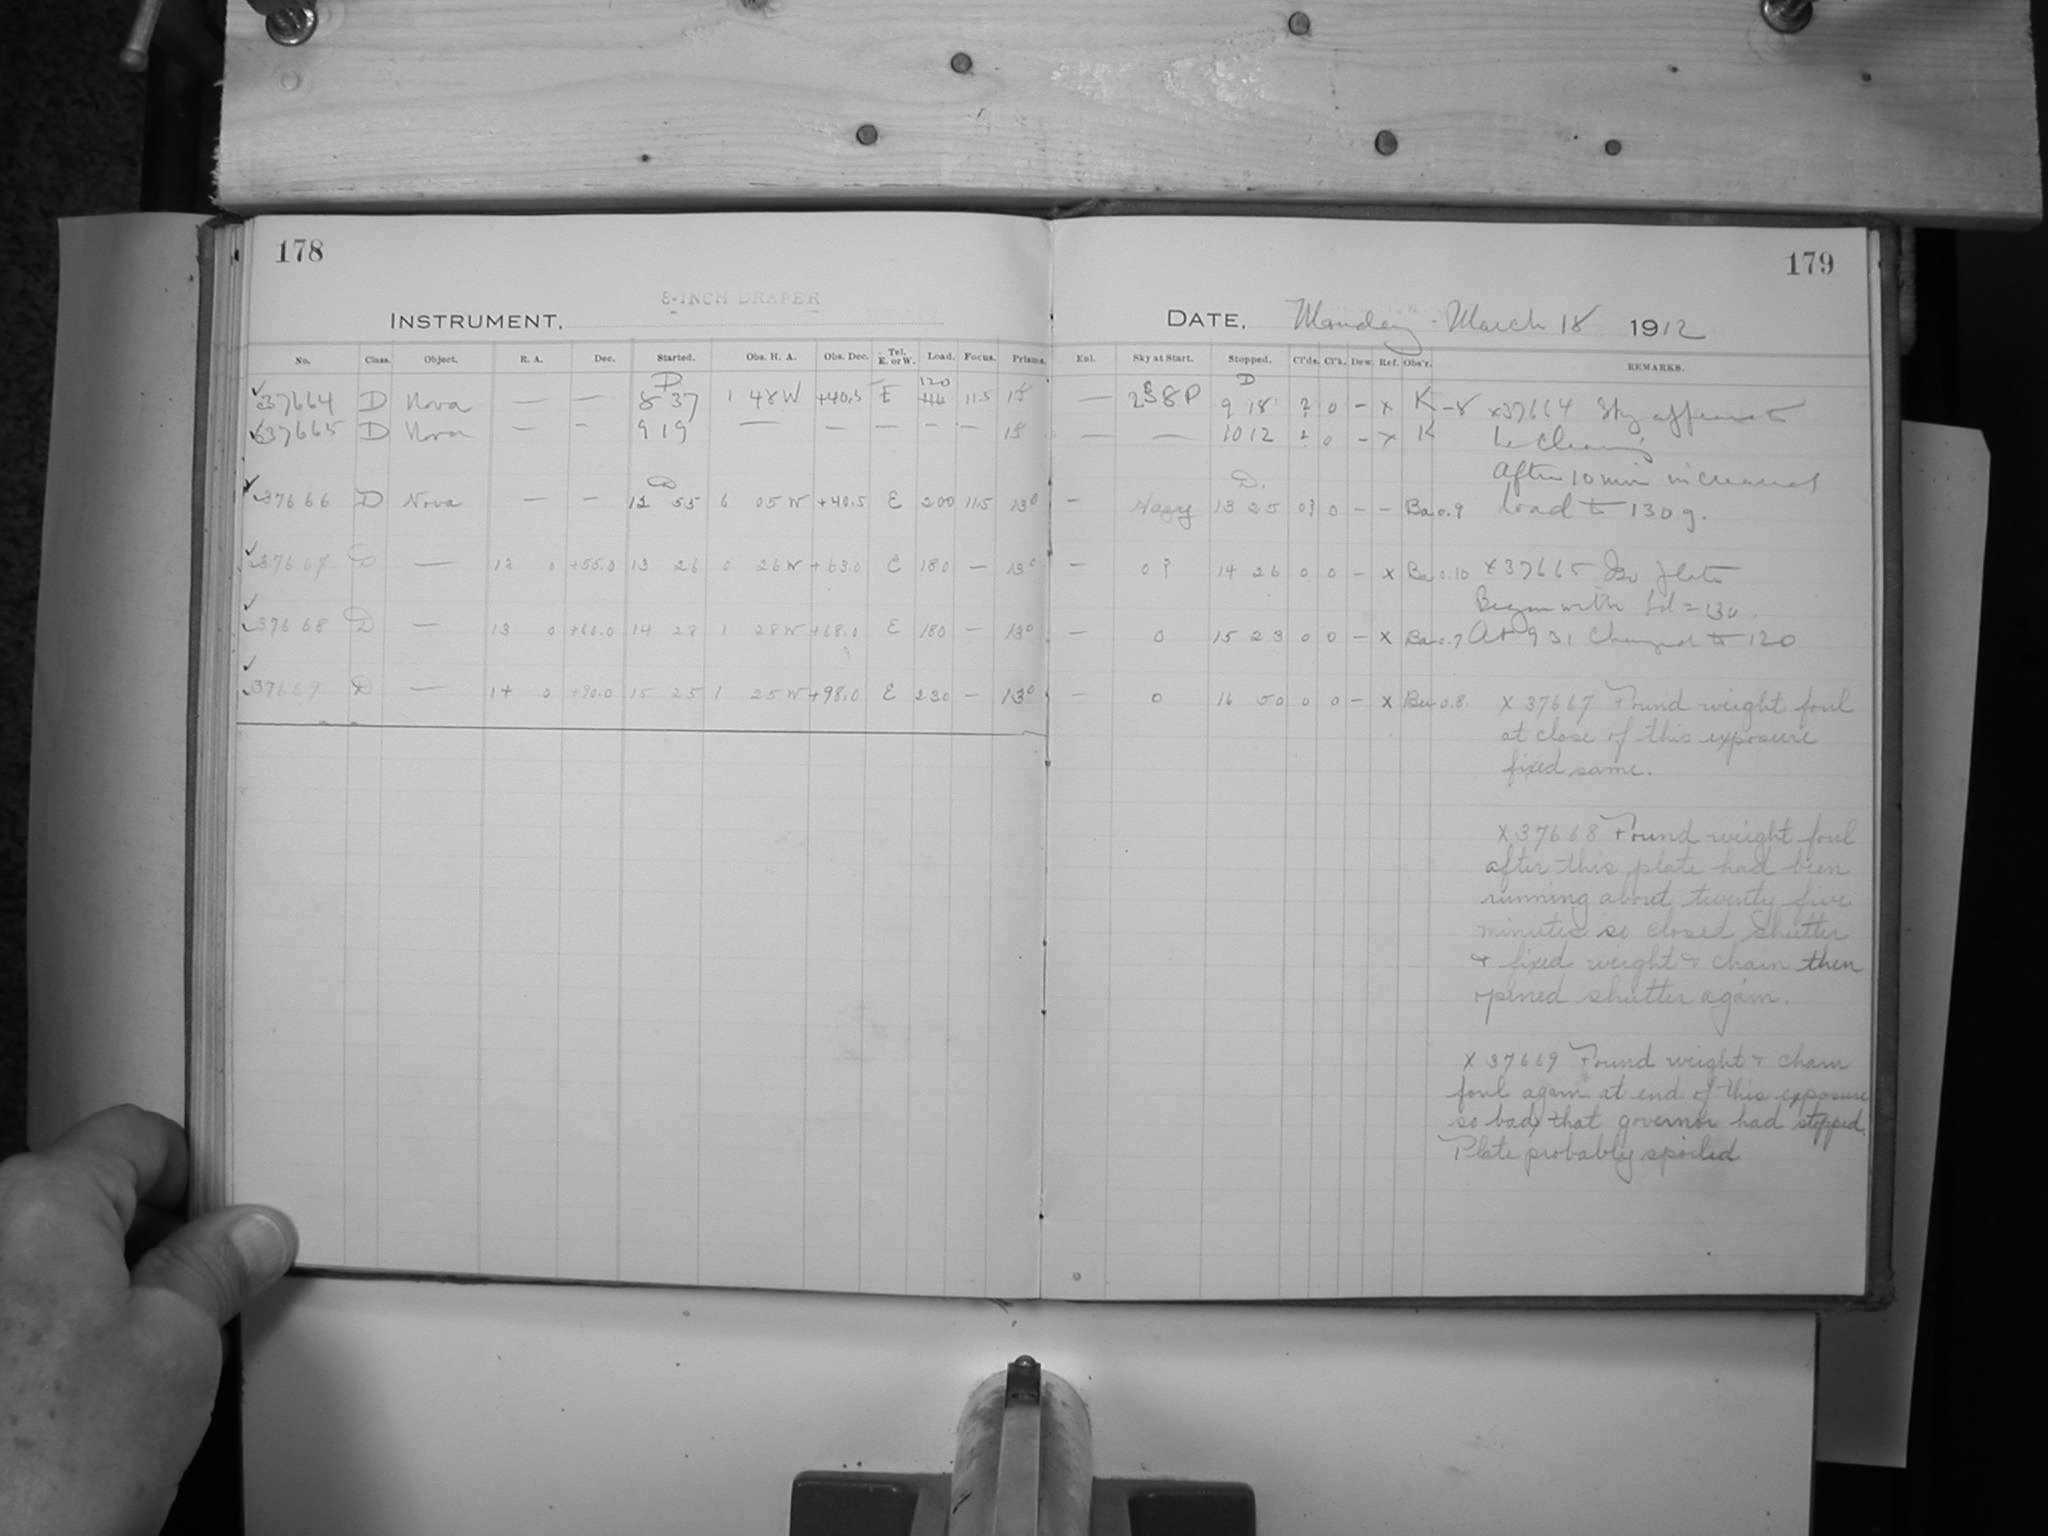 178
179
8-INCH DRAPER
INSTRUMENT.
DATE. Monday - March 18 1912
No. Class. Object. R. A. Dec. Started. Obs. H. A. Obs. Dec. Tel. E. or W. Load. Focus. Prisms. Enl. Sky at Start. Stopped. Cl'ds. Cl'k. Dew. Ref. Obs'r. REMARKS.
37664 D Nova — — D 8 37 1 48 W +40.5 E 120 11.5 — D 9 18 ? 0 - x K -8 x37664 Sky appears to
37665 D Nova — — 9 19 — — — — — — — 10 12 0 - x K be clearing
After 10 min increased
37666 D Nova — — D 12 55 6 05 W +40.5 E 200 11.5 13° — Hazy D. 13 25 0? 0 - - Ba 0.9 load to 130 g.
37667 D — 12 0 +55.0 13 26 0 26 W +63.0 E 180 — 13° — 0? 14 26 0 0 - x Ba 0.10 x37665 plate
Began with Ld = 130.
37668 D — 13 0 14 28 1 28 W +68.0 E 180 — 13° — 0 15 23 0 0 - x Ba 0.7 At 9 31 changed to 120
37669 D — 14 0 +90.0 15 25 1 25 W +98.0 E 230 — 13° — 0 16 50 0 0 - x Ba 0.8 x 37667 Found weight foul
at close of this exposure
fixed same.
x 37668 Found weight foul
after this plate had been
running about twenty five
minutes so closed shutter
& fixed weight & chain then
opened shutter again.
x 37669 Found weight & chain
foul again at end of this exposure
so bad that governor had stopped.
Plate probably spoiled